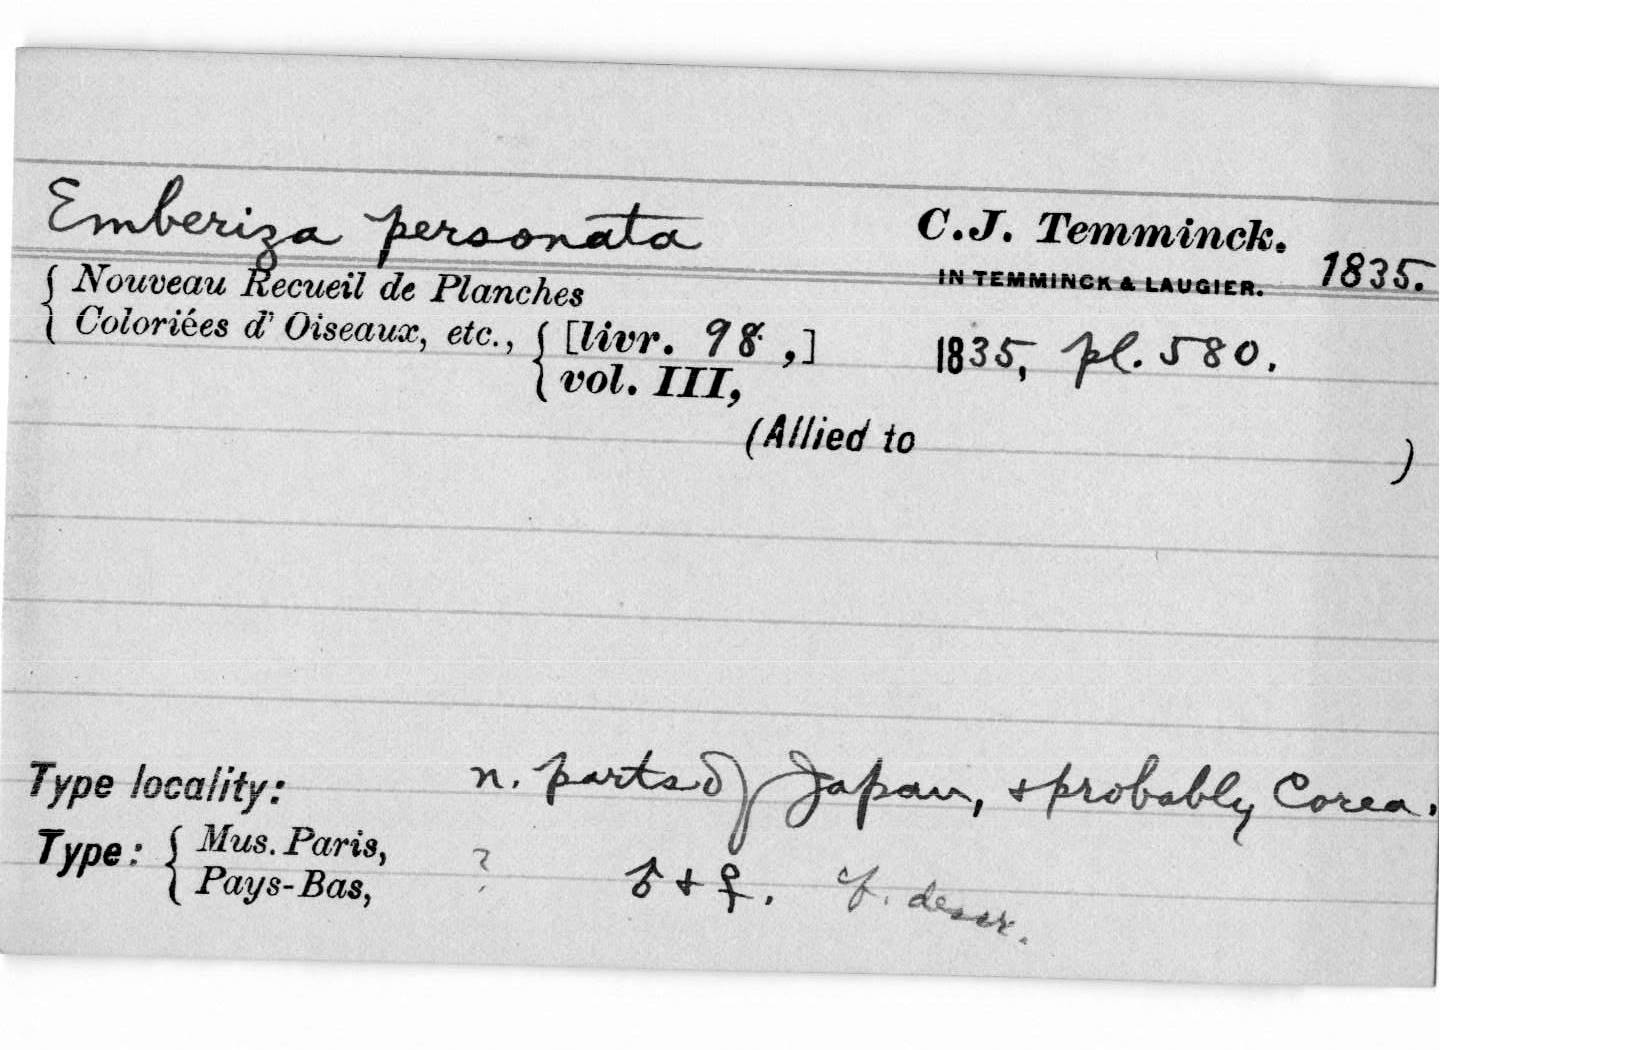 Emberiza personata C.J. Temminck.
IN TEMMINCK & LAUGIER. 1835.
{ Nouveau Recueil de Planches
Coloriées d' Oiseaux, etc., { [livr. 98 ,] 1835, pl. 580.
vol. III,
(Allied to )
Type locality: n. parts of Japan, & probably Corea.
Type: { Mus. Paris,
Pays-Bas, ? ♂ & ♀. cf. descr.